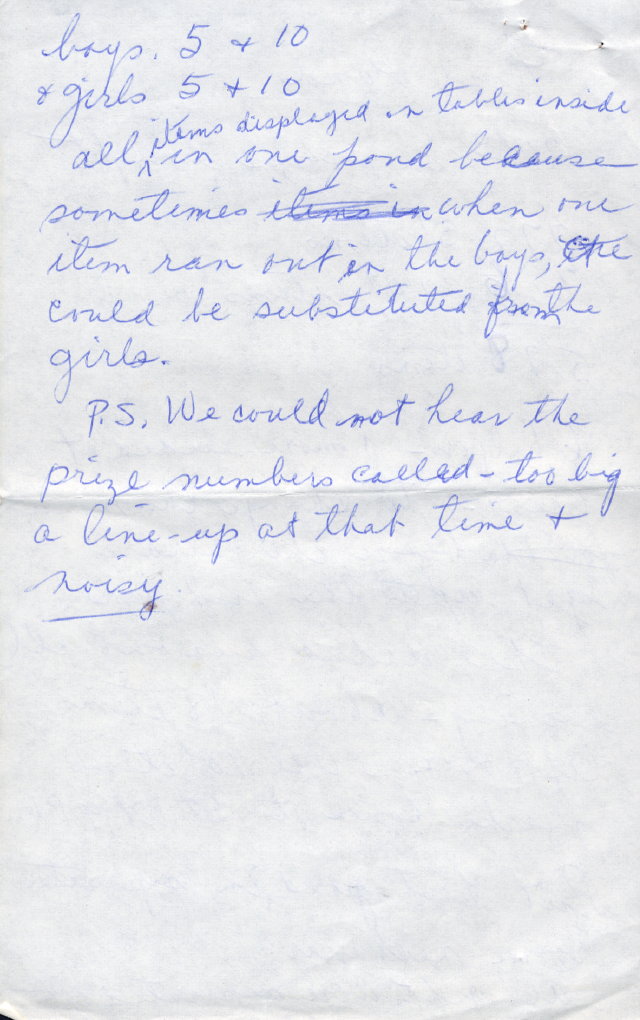 boys. 5 & 10
& girls 5 + 10
all items displayed on tables inside
in one pond because
sometimes items in when one
item ran out in the boys, the
could be substituted from the
girls.
P.S. We could not hear the
prize numbers called - too big
a line-up at that time +
noisy.